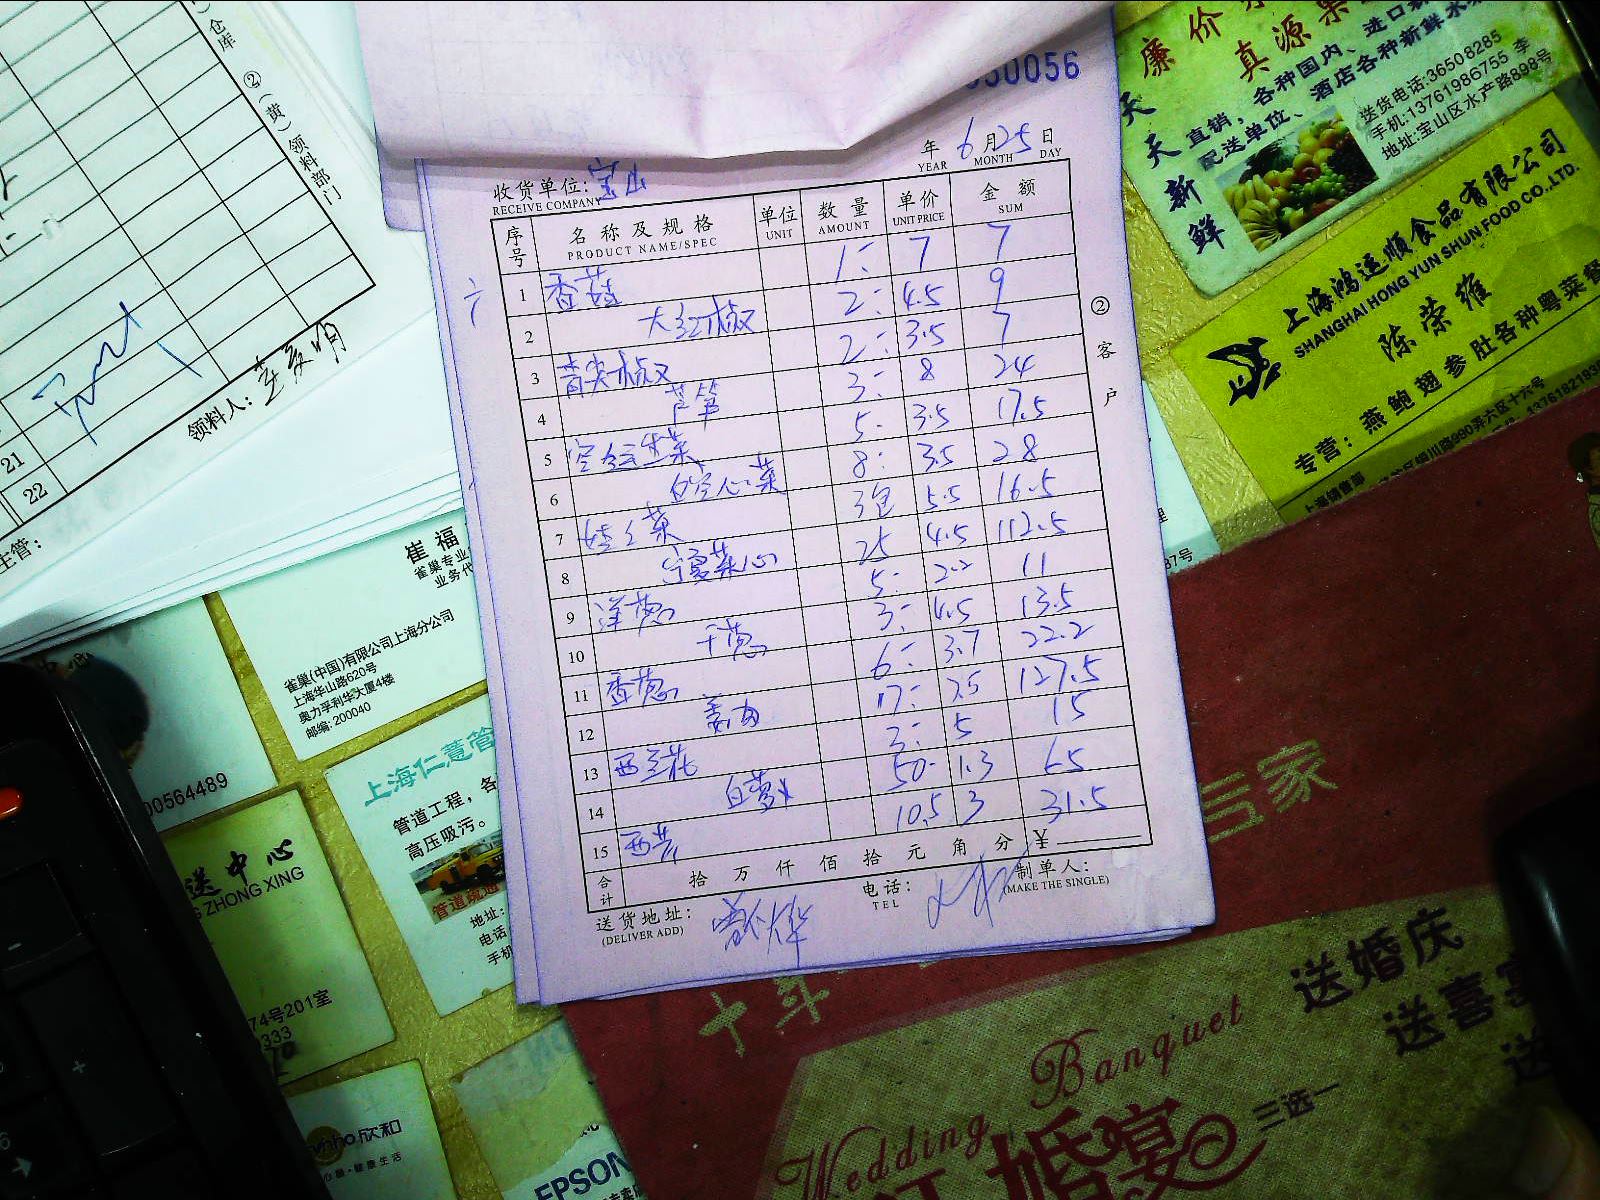 仓库
②(黄)领料部门
21
22
领料人:
主管:
050056
年 6 月 25 日
YEAR MONTH DAY
收货单位: 宝山
RECEIVE COMPANY
序号 名称及规格 单位 数量 单价 金额
PRODUCT NAME/SPEC UNIT AMOUNT UNIT PRICE SUM
1 香菇 1: 7 7
2 大红椒 2: 4.5 9
3 青尖椒 2: 3.5 7
4 芦笋 3: 8 24
5 生菜 5: 3.5 17.5
6 空心菜 8: 3.5 28
7 娃娃菜 3包 5.5 16.5
8 宁夏菜心 25 4.5 112.5
9 洋葱 5: 2.2 11
10 干葱 3: 4.5 13.5
11 香葱 6: 3.7 22.2
12 姜肉 17: 7.5 127.5
13 西兰花 3: 5 15
14 白萝卜 50- 1.3 65
15 西芹 10.5 3 31.5
合计 拾 万 仟 佰 拾 元 角 分 ¥
送货地址: 电话: 制单人:
(DELIVER ADD) TEL (MAKE THE SINGLE)
②客户
廉价
真源果
天天新鲜
直销,各种国内、进口
配送单位、酒店各种新鲜水
送货电话:36508285
手机:13761986755 李
地址:宝山区水产路898号
上海鸿运顺食品有限公司
SHANGHAI HONG YUN SHUN FOOD CO.,LTD.
陈荣维
专营:燕鲍翅参肚各种粤菜餐
上海销售部
崔福
雀巢专业
业务代
雀巢(中国)有限公司上海分公司
上海华山路620号
奥力孚利华大厦4楼
邮编:200040
00564489
上海仁薏管
管道工程,各
高压吸污。
管道疏通
地址:
电话
手机
送中心
ZHONG XING
74号201室
333
欣和
心愿·健康生活
EPSON
十年
三家
Wedding Banquet
婚宴
三选一
送婚庆
送喜宴
送